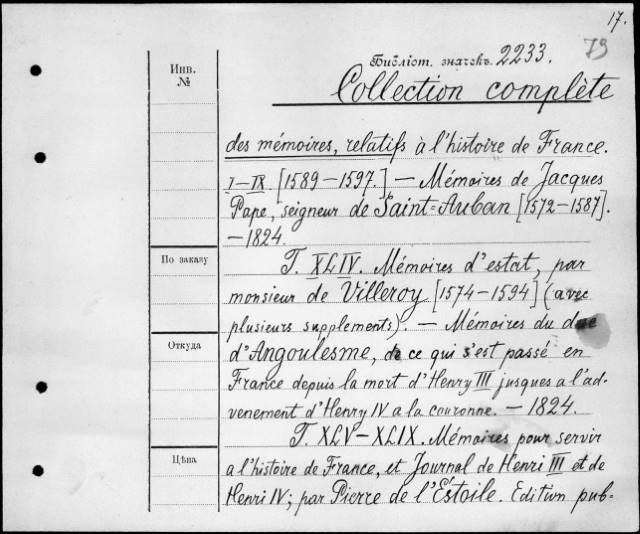 17.
79
Библіот. значекъ. 2233.
Collection complète
Инв.
№
des mémoires, relatifs à l'histoire de France.
I–IX. [1589–1597.] – Mémoires de Jacques
Pape, seigneur de Saint-Auban [1572–1587].
– 1824.
По заказу
T. XLIV. Mémoires d'estat, par
monsieur de Villeroy [1574–1594] (avec
plusieurs supplements). – Mémoires du duc
Откуда
d'Angoulesme, de ce qui s'est passé en
France depuis la mort d'Henry III jusques a l'ad-
venement d'Henry IV a la couronne. – 1824.
T. XLV–XLIX. Mémoires pour servir
Цѣна
a l'histoire de France, et Journal de Henri III et de
Henri IV; par Pierre de l'Estoile. Edition pub-